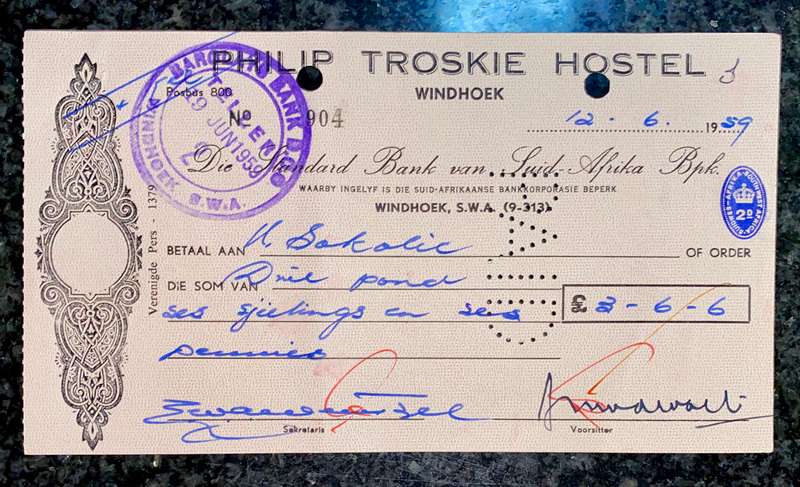 PHILIP TROSKIE HOSTEL
Posbus 800
WINDHOEK
Nº 904
12 . 6 . 1959
Die Standard Bank van Suid-Afrika Bpk.
WAARBY INGELYF IS DIE SUID-AFRIKAANSE BANKKORPORASIE BEPERK
WINDHOEK, S.W.A. (9-313)
BETAAL AAN N Sokolic OF ORDER
DIE SOM VAN Drie pond
ses sjielings en ses
£ 3 - 6 - 6
pennies
Sekretaris
Voorsitter
Verenigde Pers - 1379
BARCLAYS BANK D.C.O.
19 JUN 1959
WINDHOEK S.W.A.
SUIDWES-AFRIKA SOUTH WEST AFRICA
2D